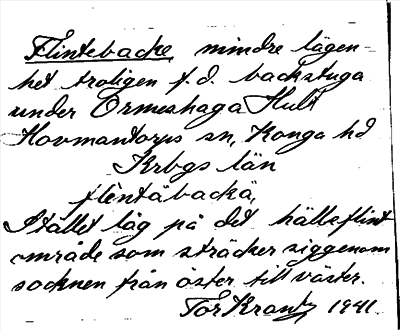 Flintebacke, mindre lägen-
het troligen f.d. backstuga
under Ormeshaga Hult
Hovmantorps sn, Konga hd
Krbgs län
flèntäbackä,
Stället låg på det hälleflint
område som sträcker sig genom
socknen från öster till väster.
Tor Krantz 1941